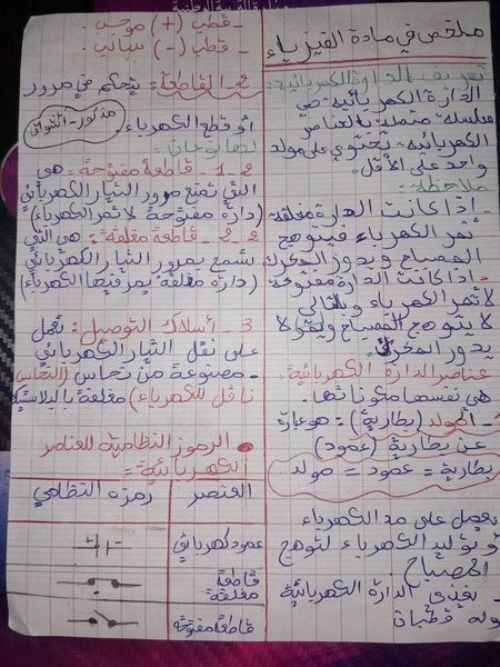 ملخص في مادة الفيزياء
تعريف الدارة الكهربائية:
الدارة الكهربائية هي
سلسلة متصلة بالعناصر
الكهربائية تحتوي على مولد
واحد على الأقل.
ملاحظة:
- إذا كانت الدارة مغلقة
تمر الكهرباء فيتوهج
المصباح ويدور المحرك
- إذا كانت الدارة مفتوحة
لا تمر الكهرباء وبالتالي
لا يتوهج المصباح ولا
يدور المحرك.
عناصر الدارة الكهربائية:
هي نفسها مكوناتها.
- المولد (بطارية): هو عبارة
عن بطارية (عمود)
بطارية = عمود = مولد
يعمل على مد الكهرباء
و توليد الكهرباء لتوهج
المصباح
- يغذي الدارة الكهربائية
وله قطبان
- قطب (+) موجب.
- قطب (-) سالب.
2- القاطعة: يتحكم في مرور
أو قطع الكهرباء.
مذكور - الثواني
لها نوعان:
2-1- قاطعة مفتوحة: هي
التي تمنع مرور التيار الكهربائي
(دارة مفتوحة لا تمر الكهرباء)
2-2- قاطعة مغلقة: هي التي
تسمح بمرور التيار الكهربائي
(دارة مغلقة يمر فيها الكهرباء)
3- أسلاك التوصيل: تعمل
على نقل التيار الكهربائي
- مصنوعة من نحاس (النحاس
ناقل للكهرباء) مغلفة بالبلاستيك
الرموز النظامية للعناصر
الكهربائية:
العنصر رمزه النظامي
عمود كهربائي
قاطعة
مغلقة
قاطعة مفتوحة